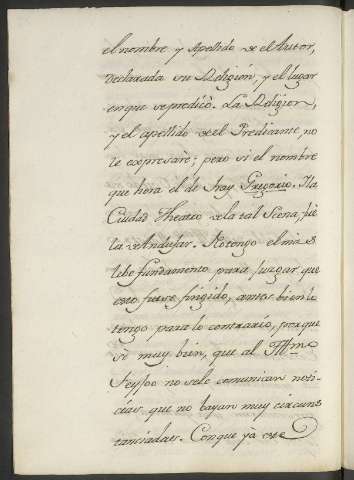 el nombre y Apellido de el Autor,
declarada su Religión, y el lugar
en que se predicò. La Religion,
y el apellido de el Predicante, no
le expresarè; pero si el nombre
que hera el de fray Gregorio. Ila
Ciudad Theatro de la tal Scena, fuè
la de Andujar. No tengo el mas
lebe fundamento para juzgar que
esto fuese fingido, antes bien lo
tengo para lo contrario, porque
sè muy bien, que al Ill.mo
Feyjoo no se le comunican noti-
cias que no bayan muy circuns
tanciadas. Conque yà este